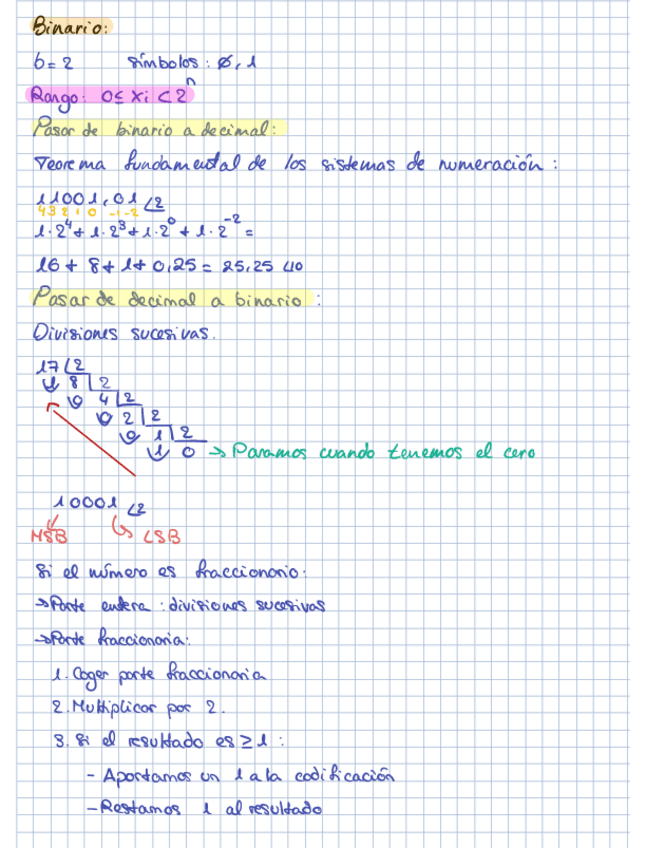 Binario:
b=2 símbolos: 0, 1
Rango: 0≤ Xi < 2ⁿ
Pasar de binario a decimal:
Teorema fundamental de los sistemas de numeración:
11001,01 ∠2
4 3 2 1 0 -1 -2
1·2⁴+ 1·2³+1·2⁰+ 1·2⁻² =
16+ 8+1+ 0,25= 25,25 ∠10
Pasar de decimal a binario:
Divisiones sucesivas.
17 2
1 8 2
0 4 2
0 2 2
0 1 2
1 0 → Paramos cuando tenemos el cero
10001 ∠2
MSB LSB
Si el número es fraccionario:
→Parte entera: divisiones sucesivas
→Parte fraccionaria:
1. Coger parte fraccionaria
2. Multiplicar por 2.
3. Si el resultado es ≥1:
- Aportamos un 1 a la codificación
- Restamos 1 al resultado